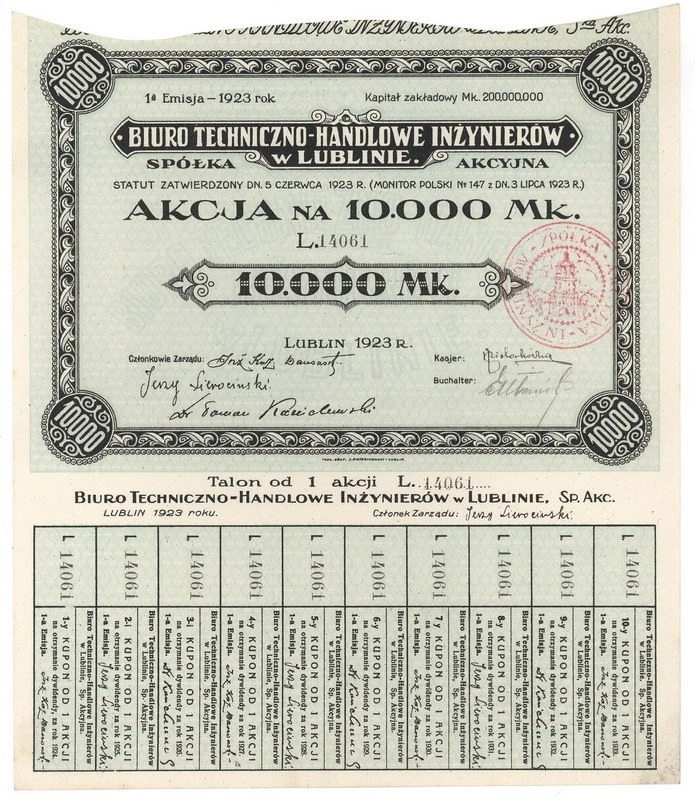 HANDLOWE INŻYNIERÓW W LUBLINIE, SKA AKC.
10.000
10.000
1a Emisja – 1923 rok
Kapitał zakładowy Mk. 200,000,000
BIURO TECHNICZNO-HANDLOWE INŻYNIERÓW
W LUBLINIE.
SPÓŁKA AKCYJNA
STATUT ZATWIERDZONY DN. 5 CZERWCA 1923 R. (MONITOR POLSKI № 147 z DN. 3 LIPCA 1923 R.)
AKCJA NA 10.000 MK.
L. 14061
10.000 MK.
SPÓŁKA
LUBLIN 1923 R.
Członkowie Zarządu: Inż Kaz.
Kasjer:
Jerzy Sierociński.
Buchalter:
Dr Roman
10.000
10.000
Talon od 1 akcji L. 14061
BIURO TECHNICZNO-HANDLOWE INŻYNIERÓW W LUBLINIE, SP. AKC.
LUBLIN 1923 roku.
Członek Zarządu: Jerzy Sierociński.
L 14061
L 14061
L 14061
L 14061
L 14061
L 14061
L 14061
L 14061
L 14061
L 14061
Biuro Techniczno-Handlowe Inżynierów
w Lublinie, Sp. Akcyjna.
1-y KUPON OD 1 AKCJI
na otrzymanie dywidendy za rok 1924.
1-a Emisja.
Biuro Techniczno-Handlowe Inżynierów
w Lublinie, Sp. Akcyjna.
2-i KUPON OD 1 AKCJI
na otrzymanie dywidendy za rok 1925.
1-a Emisja. Jerzy Sierociński
Biuro Techniczno-Handlowe Inżynierów
w Lublinie, Sp. Akcyjna.
3-i KUPON OD 1 AKCJI
na otrzymanie dywidendy za rok 1926.
1-a Emisja.
Biuro Techniczno-Handlowe Inżynierów
w Lublinie, Sp. Akcyjna.
4-y KUPON OD 1 AKCJI
na otrzymanie dywidendy za rok 1927.
1-a Emisja.
Biuro Techniczno-Handlowe Inżynierów
w Lublinie, Sp. Akcyjna.
5-y KUPON OD 1 AKCJI
na otrzymanie dywidendy za rok 1928.
1-a Emisja. Jerzy Sierociński
Biuro Techniczno-Handlowe Inżynierów
w Lublinie, Sp. Akcyjna.
6-y KUPON OD 1 AKCJI
na otrzymanie dywidendy za rok 1929.
1-a Emisja.
Biuro Techniczno-Handlowe Inżynierów
w Lublinie, Sp. Akcyjna.
7-y KUPON OD 1 AKCJI
na otrzymanie dywidendy za rok 1930.
1-a Emisja.
Biuro Techniczno-Handlowe Inżynierów
w Lublinie, Sp. Akcyjna.
8-y KUPON OD 1 AKCJI
na otrzymanie dywidendy za rok 1931.
1-a Emisja. Jerzy Sierociński
Biuro Techniczno-Handlowe Inżynierów
w Lublinie, Sp. Akcyjna.
9-y KUPON OD 1 AKCJI
na otrzymanie dywidendy za rok 1932.
1-a Emisja.
Biuro Techniczno-Handlowe Inżynierów
w Lublinie, Sp. Akcyjna.
10-y KUPON OD 1 AKCJI
na otrzymanie dywidendy za rok 1933.
1-a Emisja.